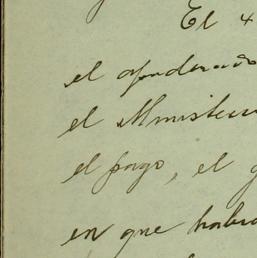 El 4
el apoderado
el Ministeri
el pago, el
en que habr